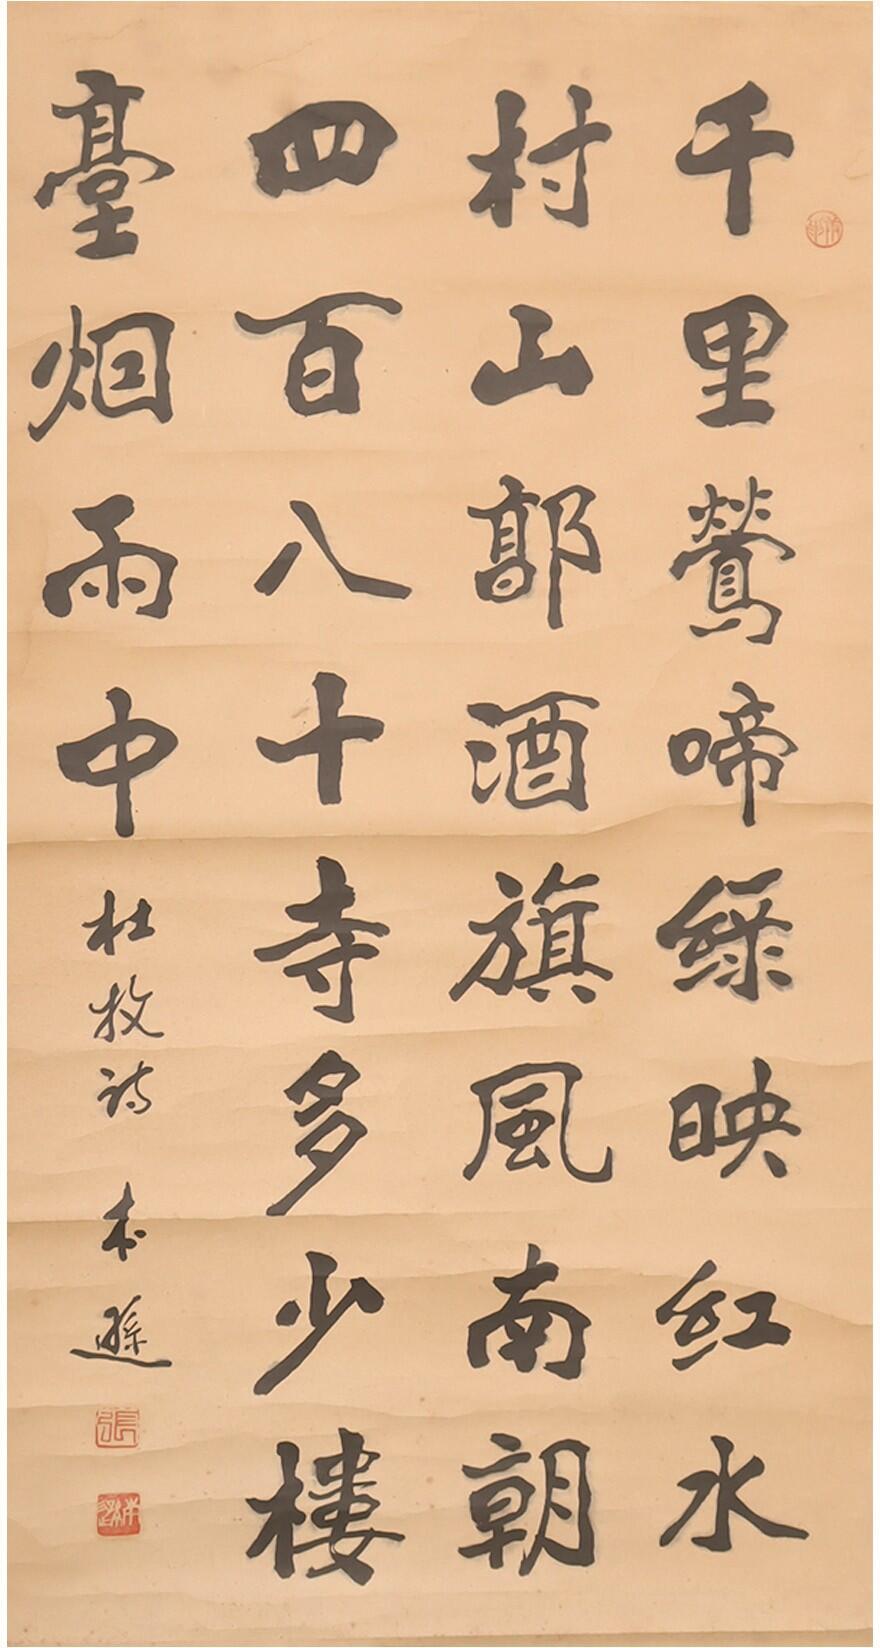 千里鶯啼綠映紅水
村山郭酒旗風南朝
四百八十寺多少樓
臺烟雨中 杜牧詩 本遜
張